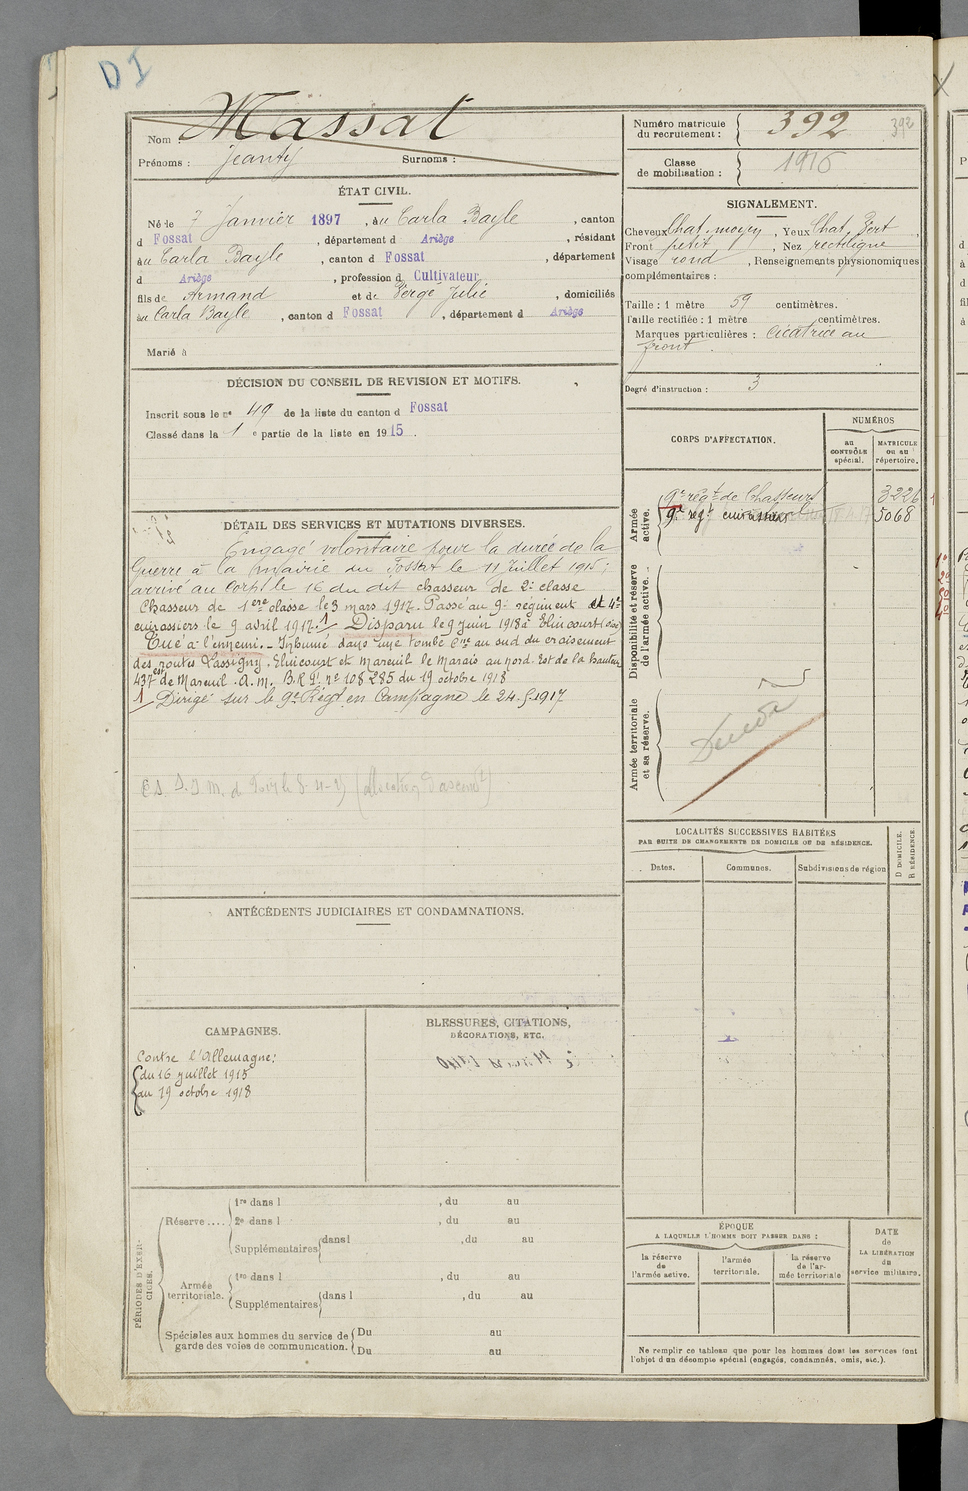 DI
Nom : Massat
Prénoms : Jeanty Surnoms :
ÉTAT CIVIL.
Né le 7 Janvier 1897, à Carla Bayle, canton
d Fossat, département d Ariège, résidant
à Carla Bayle, canton d Fossat, département
d Ariège, profession d Cultivateur
fils de Armand et de Fergé Julie, domiciliés
à Carla Bayle, canton d Fossat, département d Ariège
Marié à
DÉCISION DU CONSEIL DE REVISION ET MOTIFS.
Inscrit sous le n° 49 de la liste du canton d Fossat
Classé dans la 1 e partie de la liste en 1915.
DÉTAIL DES SERVICES ET MUTATIONS DIVERSES.
Engagé volontaire pour la durée de la
Guerre à la mairie du Fossat le 11 Juillet 1915;
arrivé au corps le 16 du dit chasseur de 2e classe
Chasseur de 1ere classe le 3 mars 1917. Passé au 9e régiment de
cuirassiers le 9 avril 1917. 1/ Disparu le 9 juin 1918 à Elincourt (oise)
Tué à l'ennemi. - Inhumé dans une tombe Cne au sud du croisement
des routes Lassigny. Elincourt et Mareuil le Marais au nord-Est de la hauteur
437 est de Mareuil. A.M. B.R. 9! n° 108285 du 19 octobre 1918
1/ Dirigé sur le 9e Régt en Campagne le 24.5.1917
ANTÉCÉDENTS JUDICIAIRES ET CONDAMNATIONS.
CAMPAGNES.
Contre l'Allemagne:
du 16 juillet 1915
au 19 octobre 1918
BLESSURES, CITATIONS,
DÉCORATIONS, ETC.
PÉRIODES D'EXERCICES.
Réserve....
1re dans l , du au
2e dans l , du au
Supplémentaires dans l , du au
Armée
territoriale.
1re dans l , du au
Supplémentaires dans l , du au
Spéciales aux hommes du service de
garde des voies de communication.
Du au
Du au
Numéro matricule
du recrutement : 392 392
Classe
de mobilisation : 1916
SIGNALEMENT.
Cheveux Chat. moyen, Yeux Chat. Vert,
Front petit, Nez rectiligne
Visage rond, Renseignements physionomiques
complémentaires :
Taille : 1 mètre 59 centimètres.
Taille rectifiée : 1 mètre centimètres.
Marques particulières : Cicatrice au
front.
Degré d'instruction : 3
CORPS D'AFFECTATION.
NUMÉROS
au
CONTRÔLE
spécial.
MATRICULE
ou au
répertoire.
Armée
active.
9e régt de Chasseurs 3226
9e régt cuirassiers 5068
Disponibilité et réserve
de l'armée active.
Armée territoriale
et sa réserve.
LOCALITÉS SUCCESSIVES HABITÉES
PAR SUITE DE CHANGEMENTS DE DOMICILE OU DE RÉSIDENCE.
Dates. Communes. Subdivisions de région
D DOMICILE.
R RÉSIDENCE.
ÉPOQUE
A LAQUELLE L'HOMME DOIT PASSER DANS :
la réserve
de
l'armée active.
l'armée
territoriale.
la réserve
de l'ar-
mée territoriale
DATE
de
LA LIBÉRATION
du
service militaire.
Ne remplir ce tableau que pour les hommes dont les services font
l'objet d'un décompte spécial (engagés, condamnés, omis, etc.).